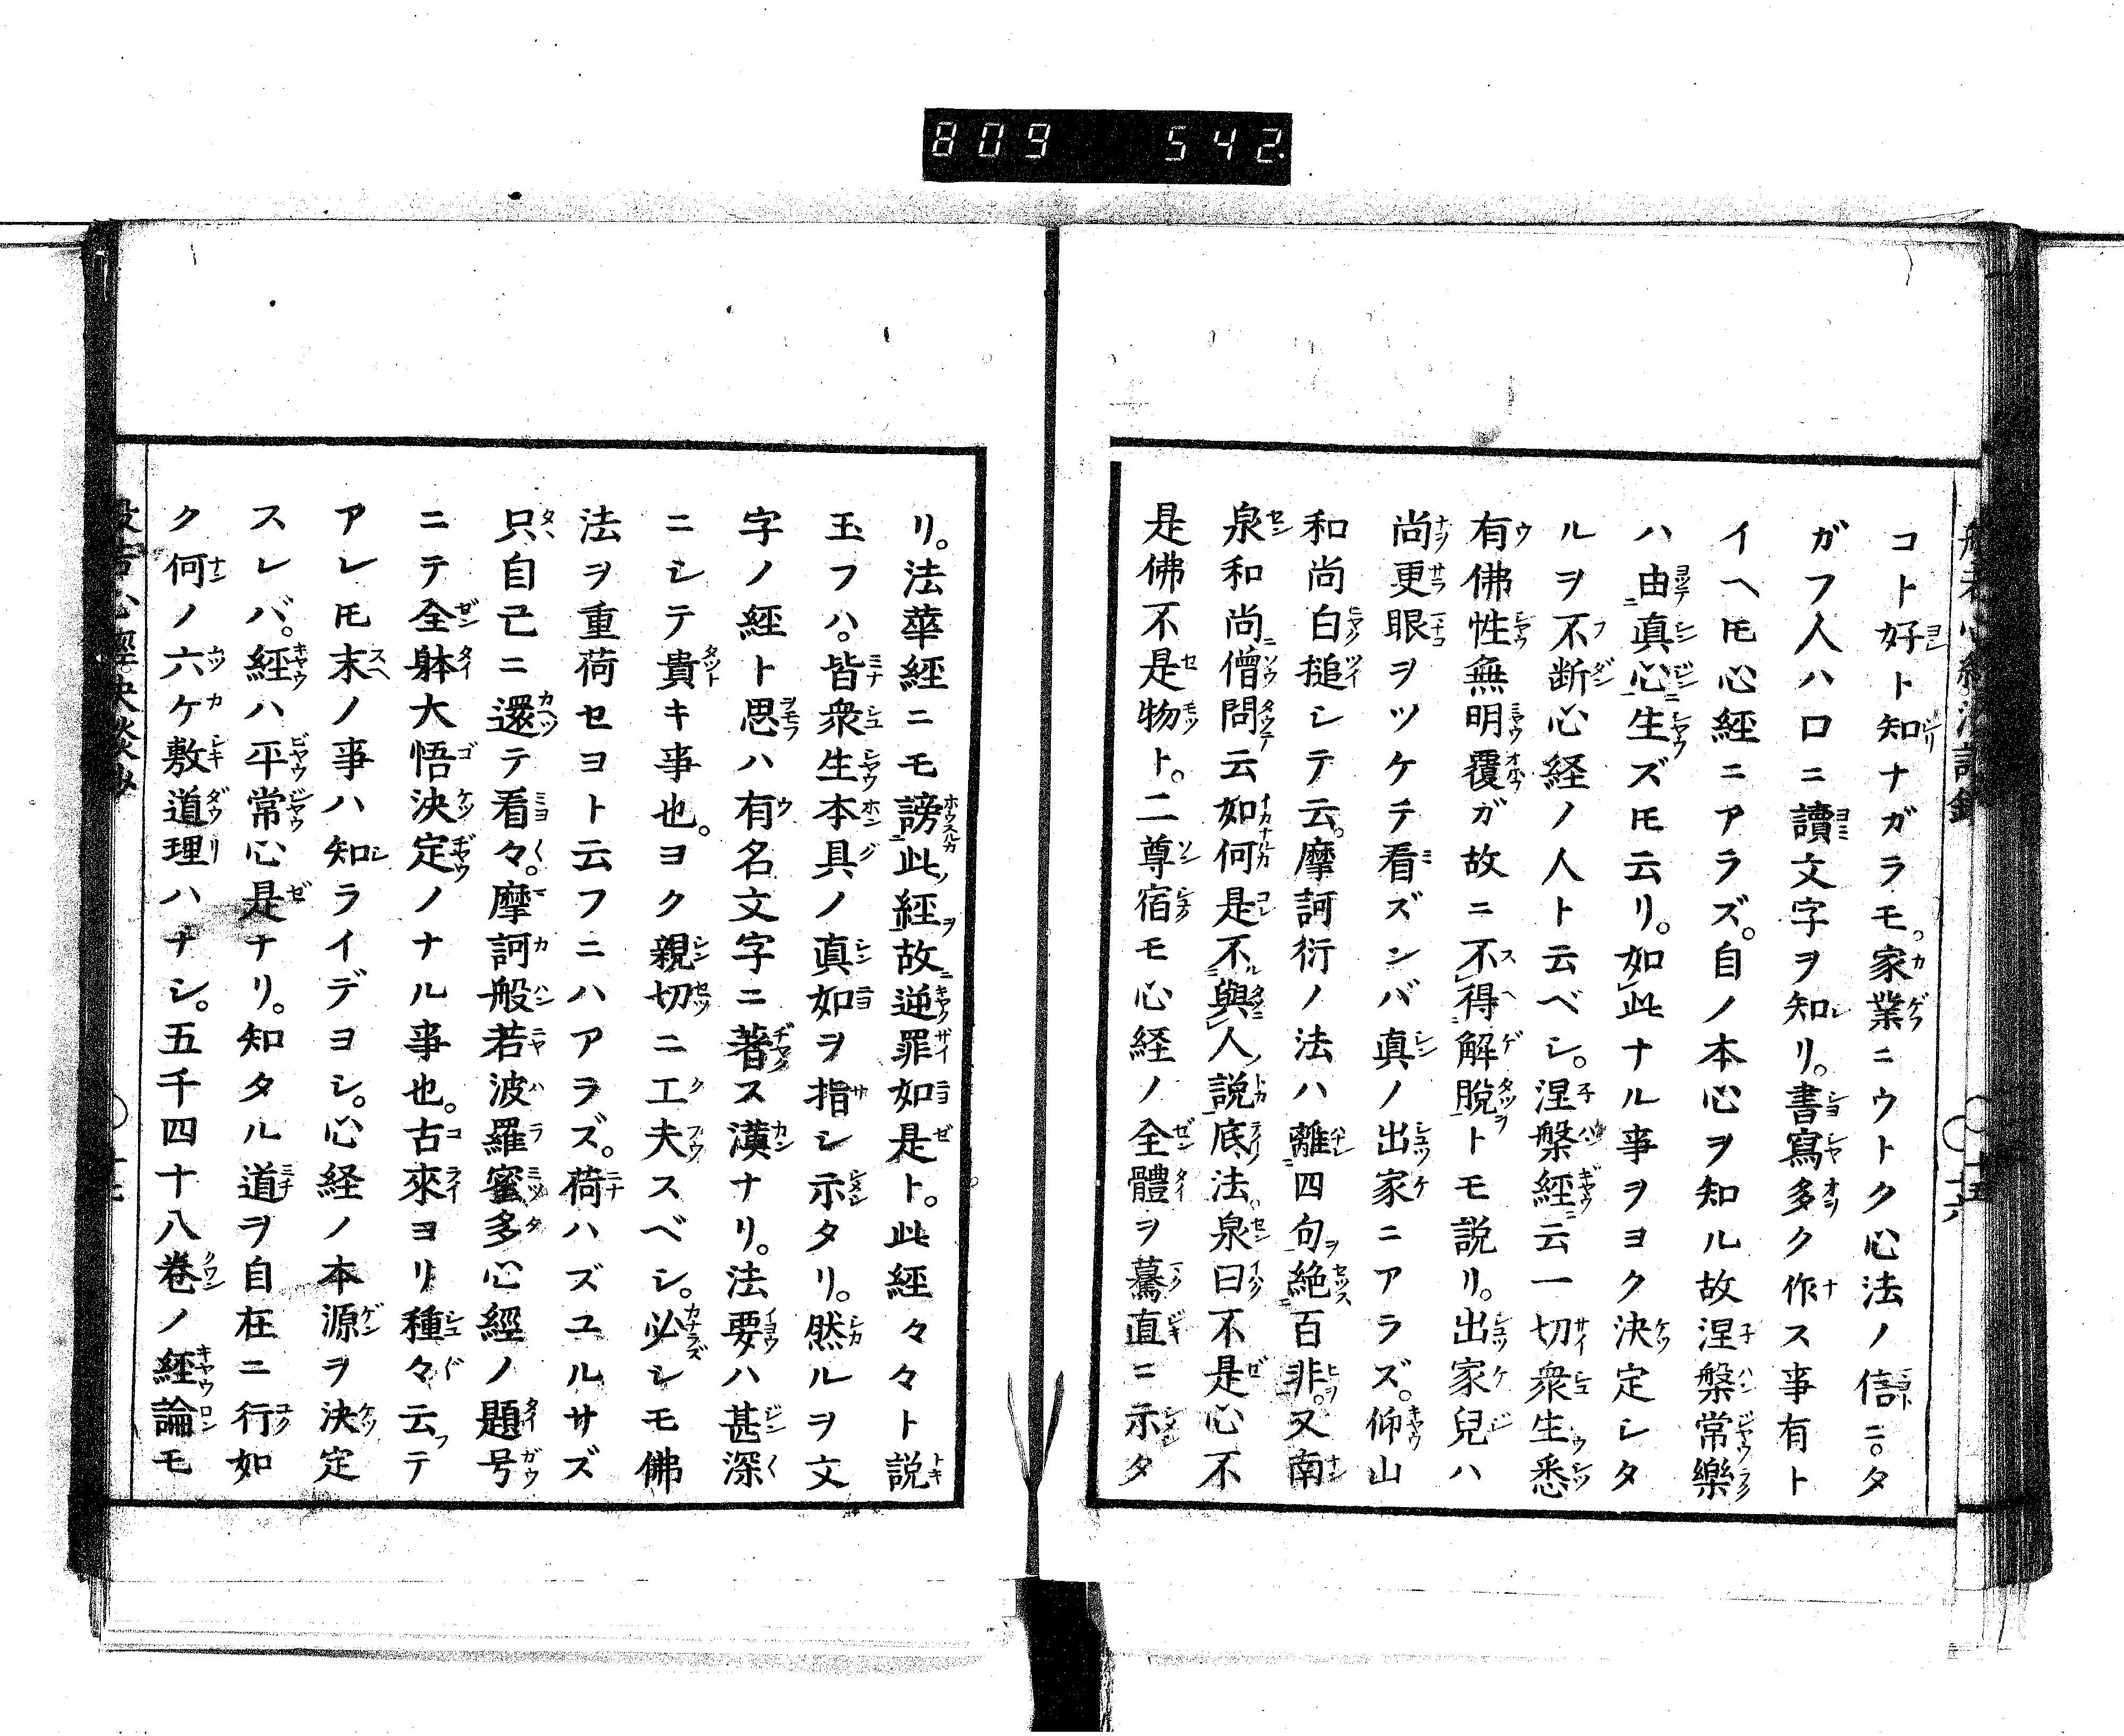 809 542
コト好ト知ナガラモ。家業ニウトク心法ノ信ニ。タ
ガフ人ハロニ讀文字ヲ知リ。書寫多ク作ス事有ト
イヘ𪜈心經ニアラズ。自ノ本心ヲ知ル故涅槃常樂
ハ由真心生ズ𪜈云リ。如此ナル事ヲヨク決定シタ
ルヲ不断心経ノ人ト云ベシ。涅槃經云一切衆生悉
有佛性無明覆ガ故ニ不得解脫トモ説リ。出家兒ハ
尚更眼ヲツケテ看ズンバ真ノ出家ニアラズ。仰山
和尚白槌シテ云。摩訶衍ノ法ハ離四句絶百非。又南
泉和尚僧問云如何是不與人說底法。泉曰不是心不
是佛不是物ト。二尊宿モ心経ノ全體ヲ驀直ニ示タ
リ。法華經ニモ謗此經故逆罪如是ト。此経々々ト説
玉フハ。皆衆生本具ノ真如ヲ指シ示タリ。然ルヲ文
字ノ經ト思ハ有名文字ニ著ス漢ナリ。法要ハ甚深
ニシテ貴キ事也。ヨク親切ニ工夫スベシ。必シモ佛
法ヲ重荷セヨト云フニハアラズ。荷ハズユルサズ
只自己ニ還テ看々。摩訶般若波羅蜜多心經ノ題号
ニテ全躰大悟決定ノナル事也。古來ヨリ種々云フテ
アレ𪜈末ノ事ハ知ライデヨシ。心経ノ本源ヲ決定
スレバ。經ハ平常心是ナリ。知タル道ヲ自在ニ行如
ク何ノ六ケ敷道理ハナシ。五千四十八巻ノ經論モ